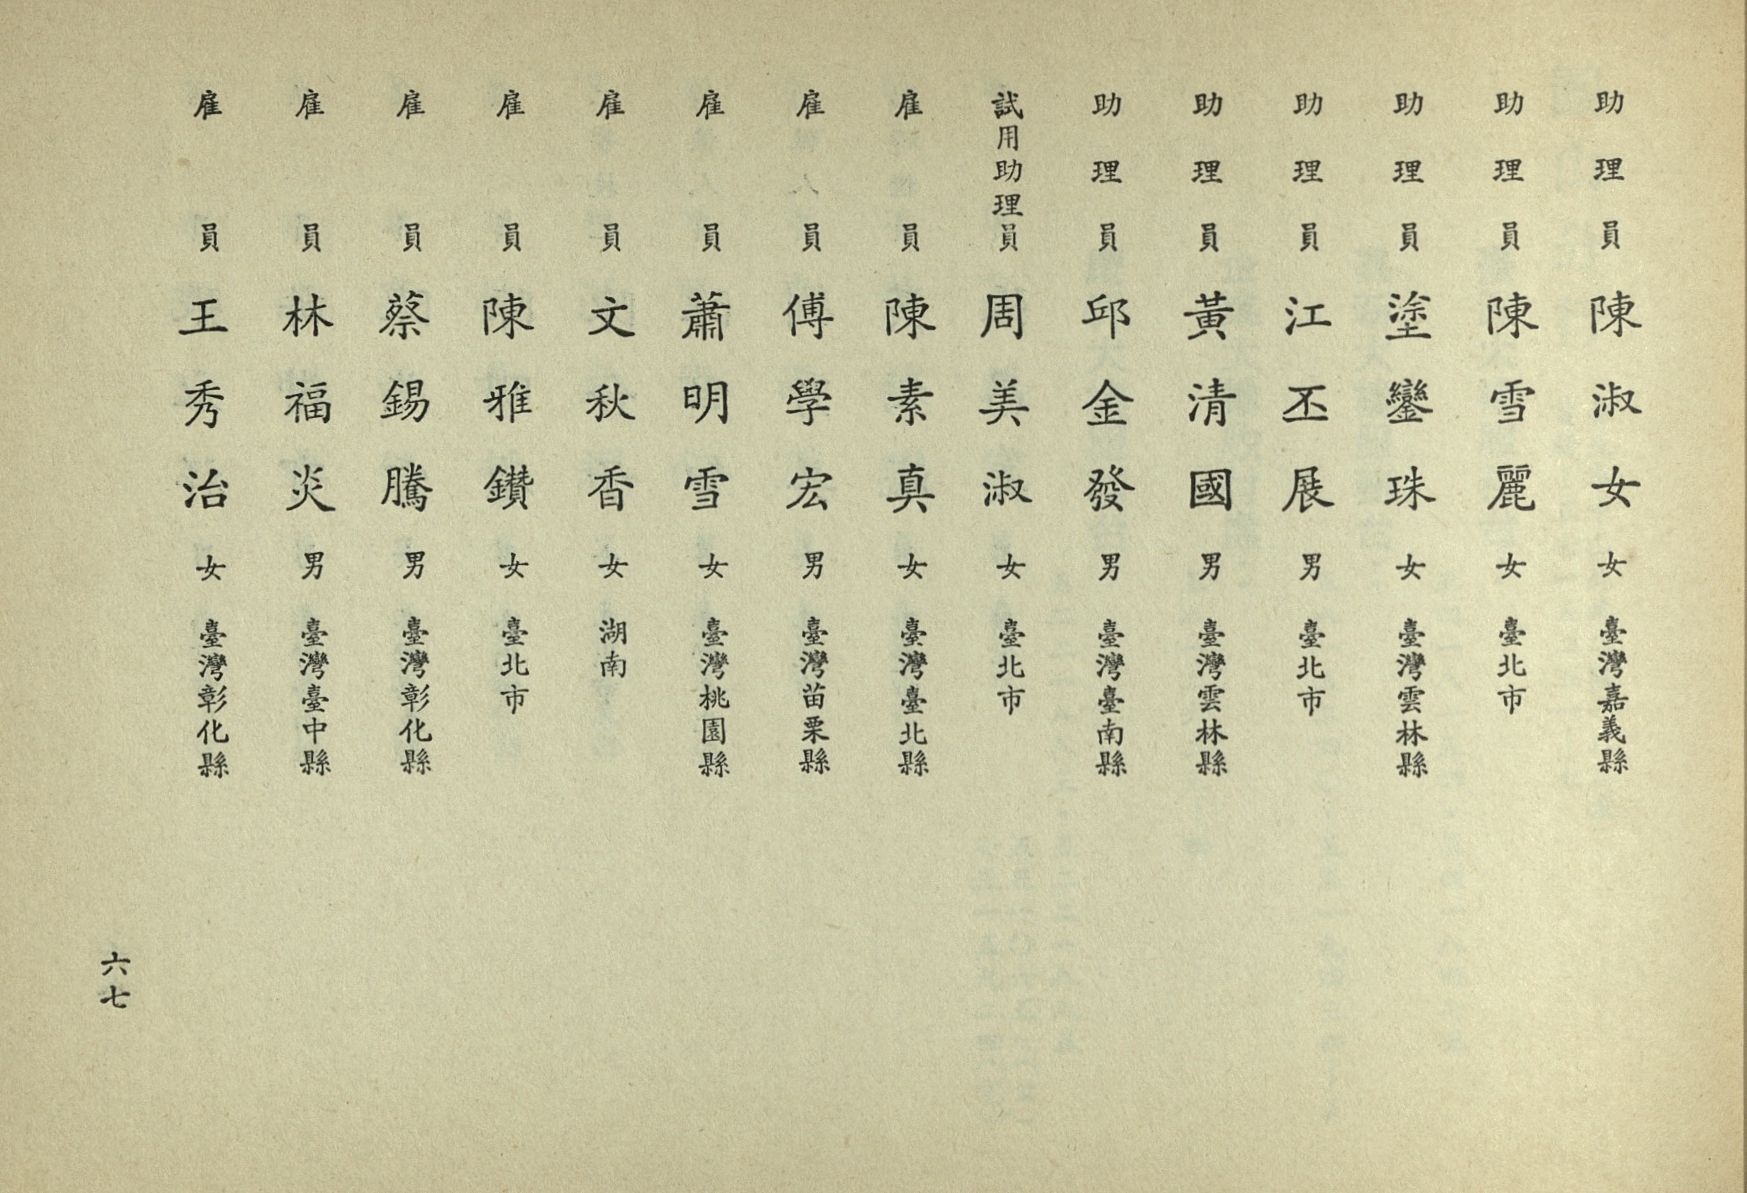 助理員 陳淑女 女 臺灣嘉義縣
助理員 陳雪麗 女 臺北市
助理員 塗鑾珠 女 臺灣雲林縣
助理員 江丕展 男 臺北市
助理員 黃清國 男 臺灣雲林縣
助理員 邱金發 男 臺灣臺南縣
試用助理員 周美淑 女 臺北市
雇員 陳素真 女 臺灣臺北縣
雇員 傅學宏 男 臺灣苗栗縣
雇員 蕭明雪 女 臺灣桃園縣
雇員 文秋香 女 湖南
雇員 陳雅鑽 女 臺北市
雇員 蔡錫騰 男 臺灣彰化縣
雇員 林福炎 男 臺灣臺中縣
雇員 王秀治 女 臺灣彰化縣
六七